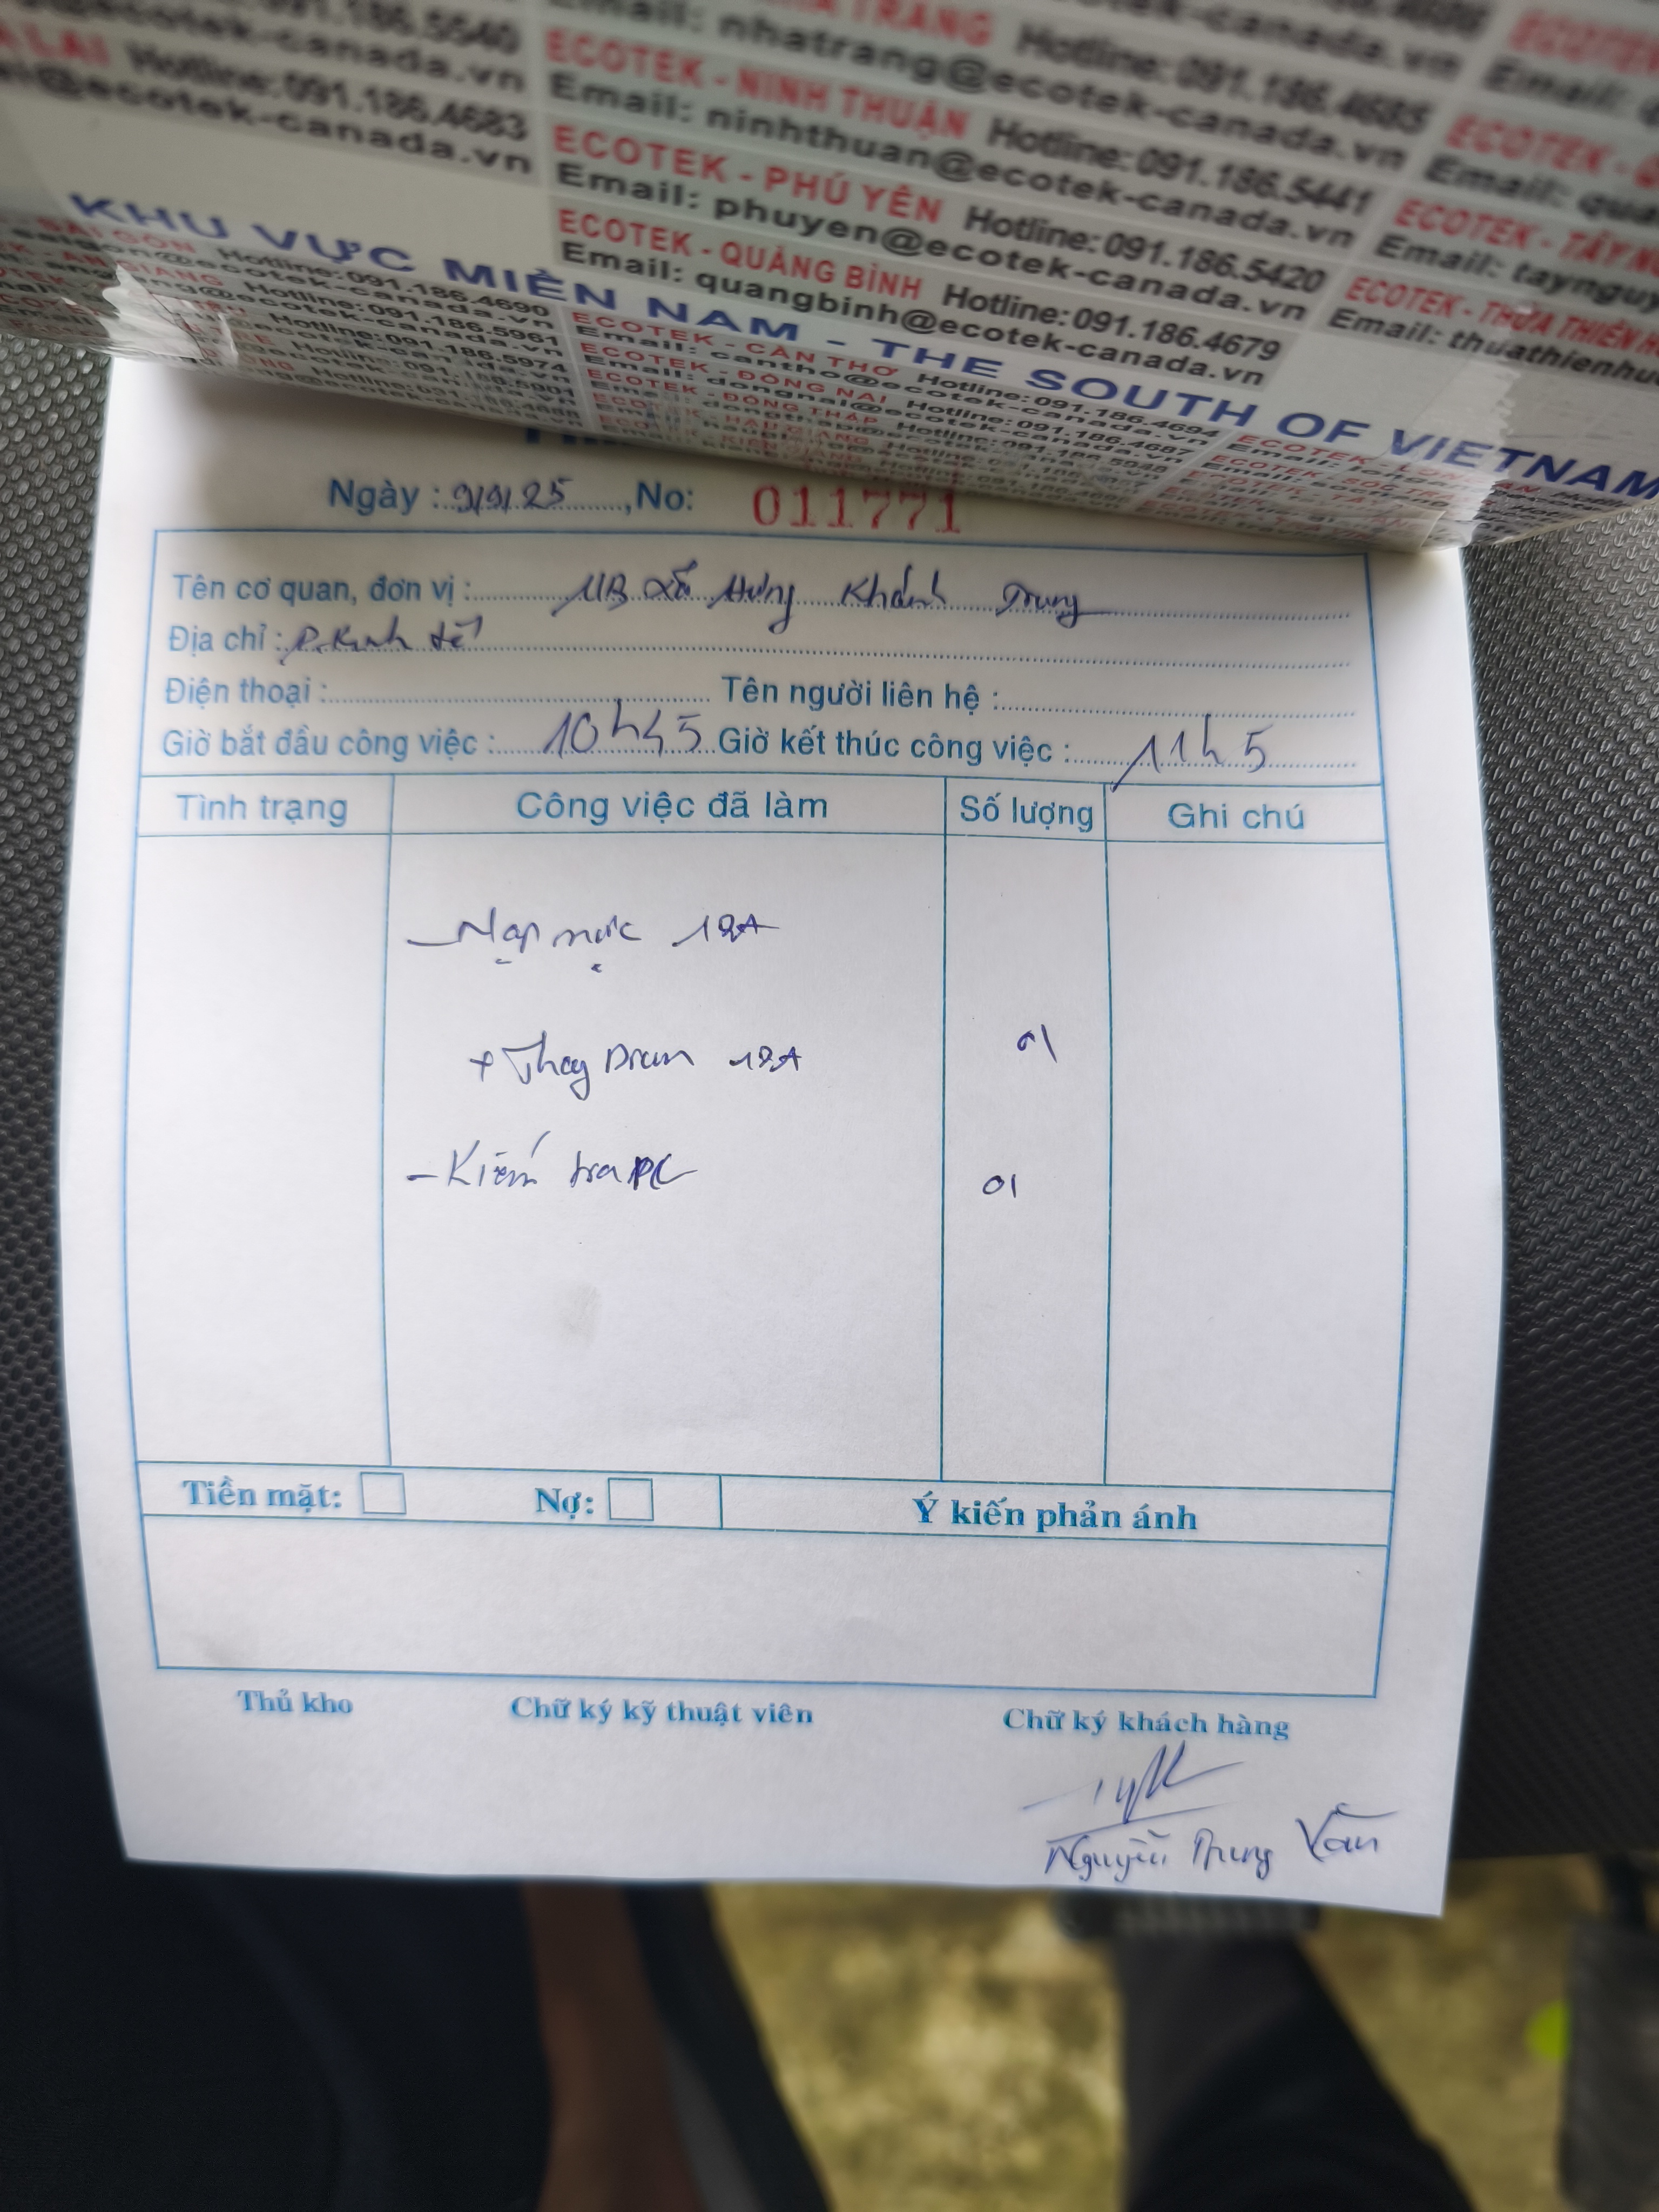 091.186.5540
ecotek-canada.vn
A LAI Hotline:091.186.4683
ai@ecotek-canada.vn
TRANG Hotline:091.186.4685
Email: nhatrang@ecotek-canada.vn
ECOTEK - NINH THUẬN Hotline:091.186.5441
Email: ninhthuan@ecotek-canada.vn
ECOTEK - PHÚ YÊN Hotline:091.186.5420
Email: phuyen@ecotek-canada.vn
ECOTEK - QUẢNG BÌNH Hotline:091.186.4679
Email: quangbinh@ecotek-canada.vn
ECOTEK
Email:
ECOTEK - Q
Email: qua
ECOTEK - TÂY NG
Email: taynguy
ECOTEK - THỪA THIÊN H
Email: thuathienhu
KHU VỰC MIỀN NAM - THE SOUTH OF VIETNAM
SÀI GÒN Hotline:091.186.4690
saigon@ecotek-canada.vn
GIANG Hotline:091.186.5961
Hotline:091.186.5974
ECOTEK - CẦN THƠ Hotline:091.186.4694
Email: cantho@ecotek-canada.vn
ECOTEK - ĐỒNG NAI Hotline:091.186.4687
Email: dongnai@ecotek-canada.vn
ECOTEK - ĐỒNG THÁP Hotline:091.186.5948
Ngày : 9/9/25 , No: 011771
Tên cơ quan, đơn vị : UB Xã Hưng Khánh Trung
Địa chỉ : P. Kinh tế
Điện thoại : Tên người liên hệ :
Giờ bắt đầu công việc : 10h45 Giờ kết thúc công việc : 11h5
Tình trạng Công việc đã làm Số lượng Ghi chú
- Nạp mực 12A
+ Thay Drum 12A 01
- Kiểm tra PC 01
Tiền mặt: Nợ: Ý kiến phản ánh
Thủ kho Chữ ký kỹ thuật viên Chữ ký khách hàng
Nguyễn Trung Văn